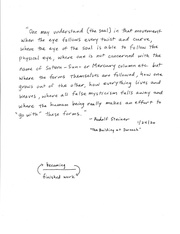 "One may understand (the soul) in that movement
when the eye follows every twist and curve,
where the eye of the soul is able to follow the
physical eye, where one is not concerned with the
name of Saturn- Sun- or Mercury column etc. but
where the forms themselves are followed, how one
grows out of the other, how everything lives and
weaves, where all false mysticism falls away and
where the human being really makes an effort to
"go with" these forms."
- Rudolf Steiner
1/25/20
"The Building at Dornach"
becoming
finished work